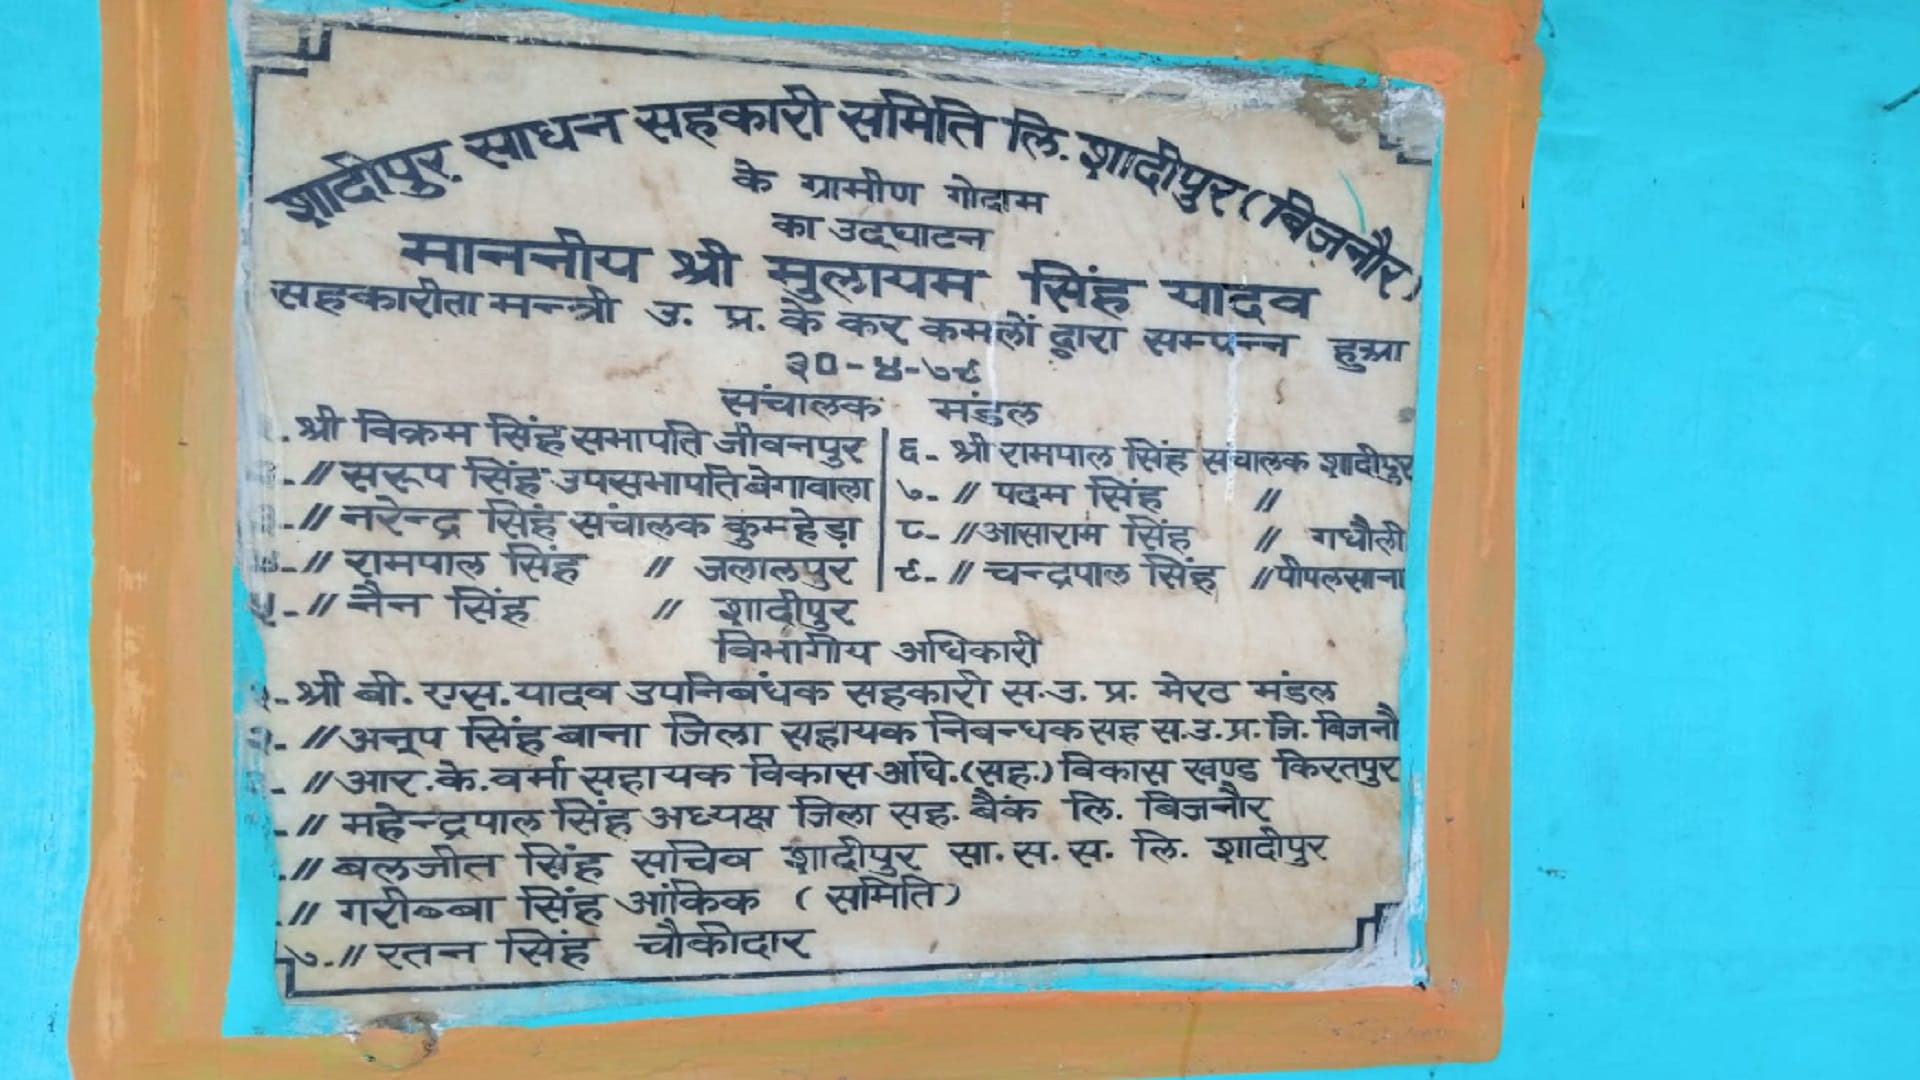 शादीपुर साधन सहकारी समिति लि. शादीपुर (बिजनौर)
के ग्रामीण गोदाम
का उद्घाटन
माननीय श्री मुलायम सिंह यादव
सहकारीता मन्त्री उ. प्र. के कर कमलों द्वारा सम्पन्न हुआ
३०-४-७९
संचालक मंडल
श्री विक्रम सिंह सभापति जीवनपुर
〃 सरूप सिंह उपसभापति बेगावाला
〃 नरेन्द्र सिंह संचालक कुमहेड़ा
〃 रामपाल सिंह 〃 जलालपुर
५-〃 नैन सिंह 〃 शादीपुर
६- श्री रामपाल सिंह संचालक शादीपुर
७-〃 पदम सिंह 〃
८-〃 आसाराम सिंह 〃 गधौली
९-〃 चन्द्रपाल सिंह 〃 पीपलसाना
विभागीय अधिकारी
श्री बी. एस. यादव उपनिबंधक सहकारी स.उ. प्र. मेरठ मंडल
२-〃 अनूप सिंह बाना जिला सहायक निबन्धक सह स.उ.प्र.जि. बिजनौ
〃 आर.के.वर्मा सहायक विकास अधि.(सह.) विकास खण्ड किरतपुर
〃 महेन्द्रपाल सिंह अध्यक्ष जिला सह. बैंक लि. बिजनौर
〃 बलजीत सिंह सचिव शादीपुर सा.स.स. लि. शादीपुर
〃 गरीब्बा सिंह आंकिक (समिति)
७-〃 रतन सिंह चौकीदार